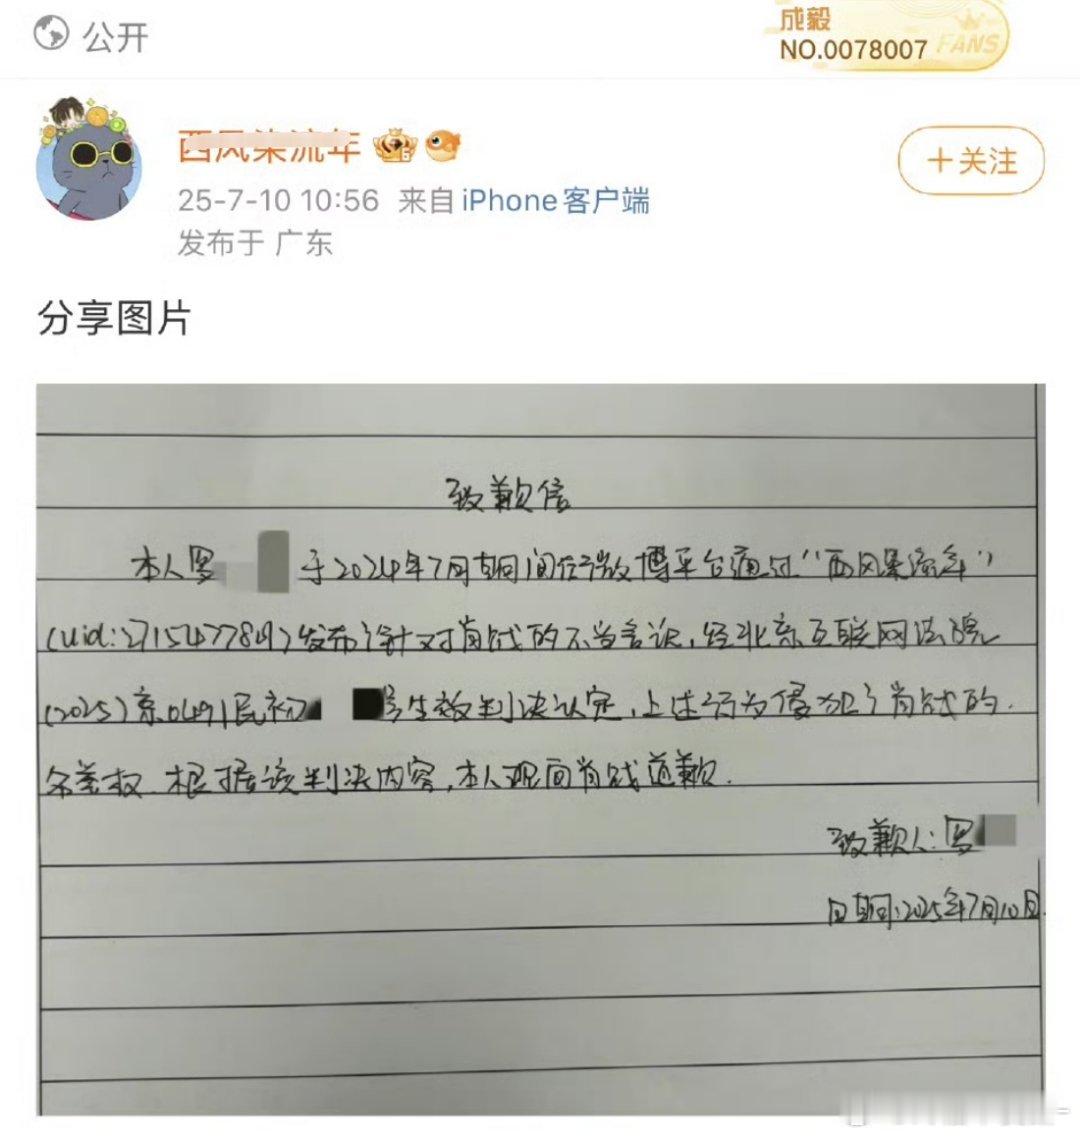 公开
成毅
NO.0078007 FANS
西风柒流年
25-7-10 10:56 来自 iPhone客户端
发布于 广东
+关注
分享图片
致歉信
本人罗 于2024年7月期间在微博平台通过“西风柒流年”
(uid: )发布针对肖战的不当言论,经北京互联网法院
(2025)京0491民初 号生效判决认定,上述行为侵犯了肖战的
名誉权.根据该判决内容,本人现向肖战道歉.
致歉人:罗
日期:2025年7月10日.